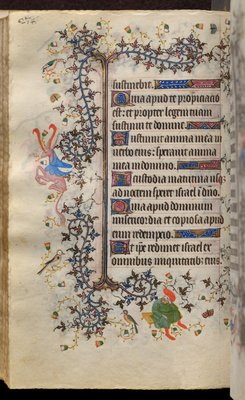 sustinebit.
Quia apud te propiciatio
est: et propter legem tuam
sustinui te domine.
Sustinuit anima mea in
verbo eius: speravit anima
mea in domino.
A custodia matutina usq3
ad noctem speret israel i dno.
Quia apud dominum
misericordia et copiosa apud
eum redempcio.
Et ipse redimet israel ex
omnibus iniquitatib3 eius.